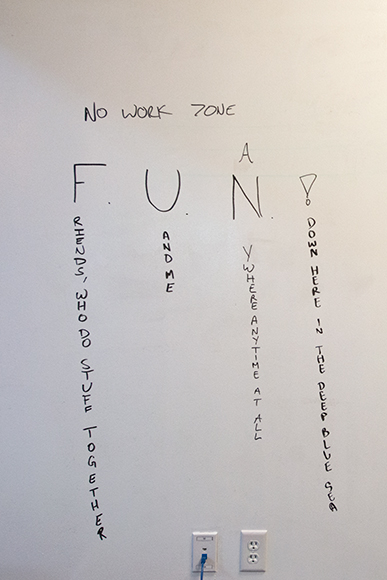 NO WORK ZONE
F.RIENDS, WHO DO STUFF TOGETHER
U. AND ME
ANYWHERE ANYTIME AT ALL
! DOWN HERE IN THE DEEP BLUE SEA